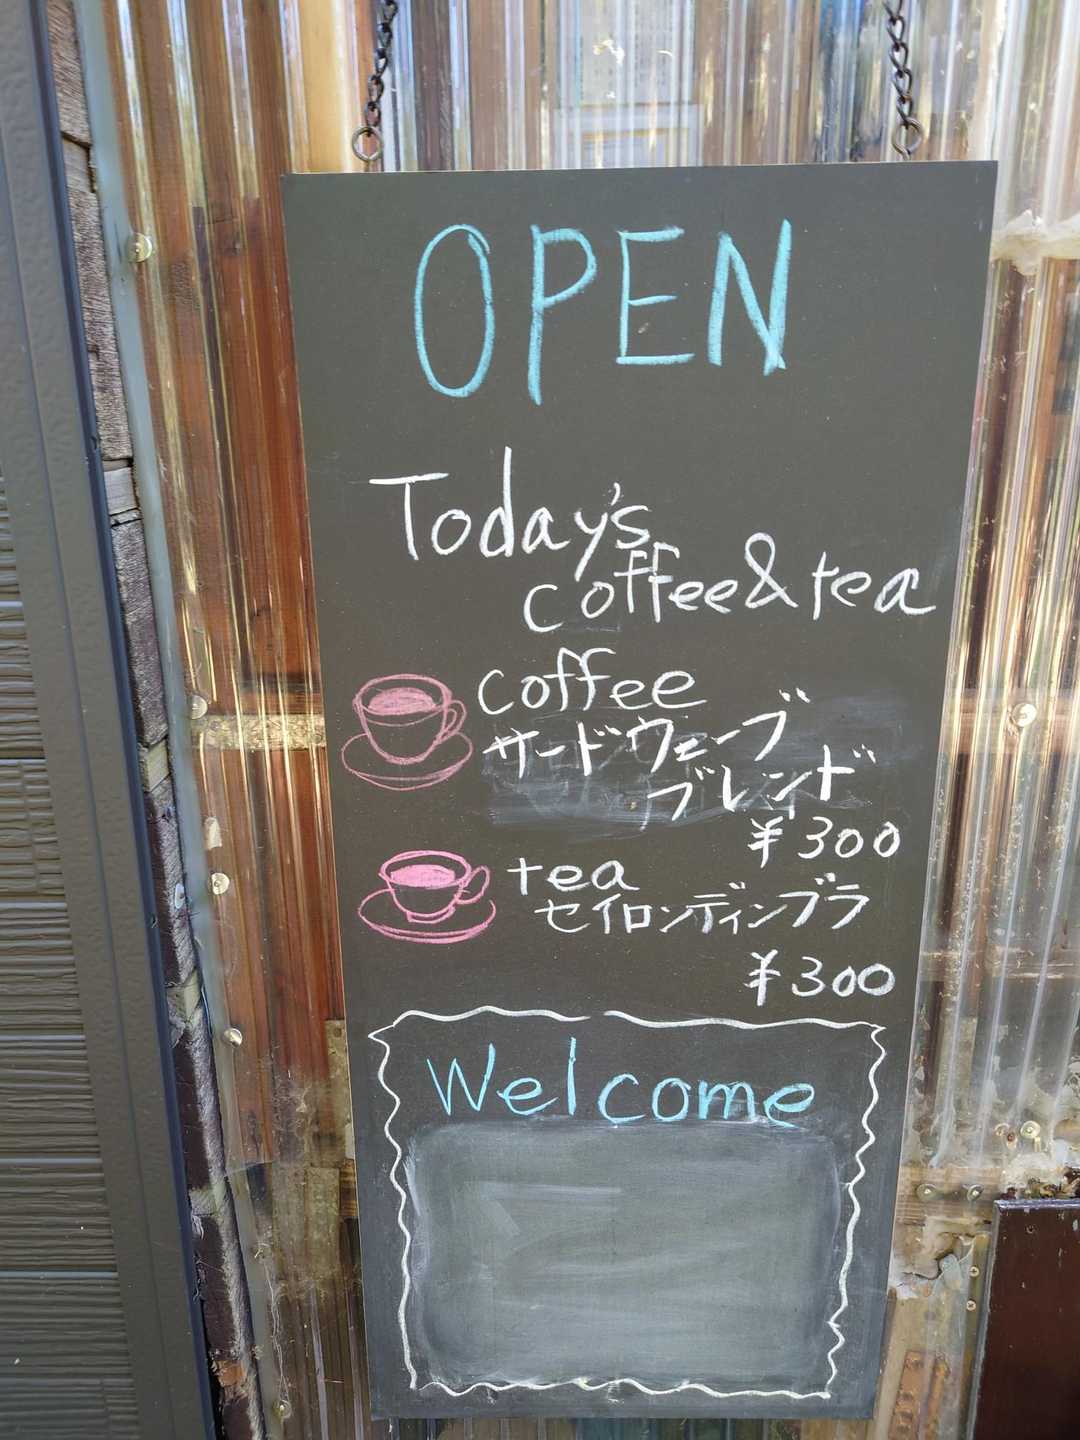 OPEN
Today's
coffee & tea
coffee
サードウェーブ
ブレンド
¥300
tea
セイロンディンブラ
¥300
Welcome